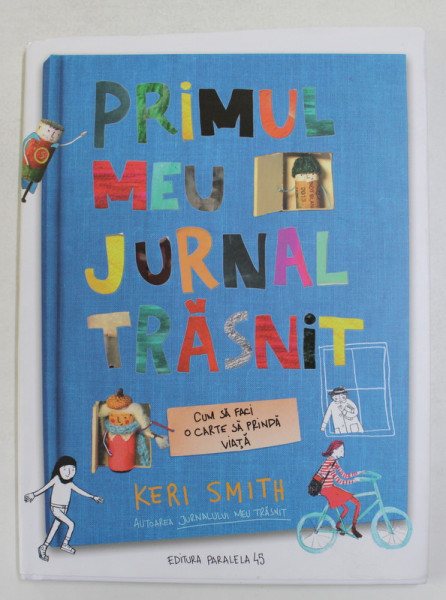 PRiMUL
MEU
JURNAL
TRĂSNiT
CUM SĂ FACI
O CARTE SĂ PRINDĂ
VIAȚĂ
KERI SMITH
AUTOAREA JURNALULUI MEU TRĂSNIT
EDITURA PARALELA 45